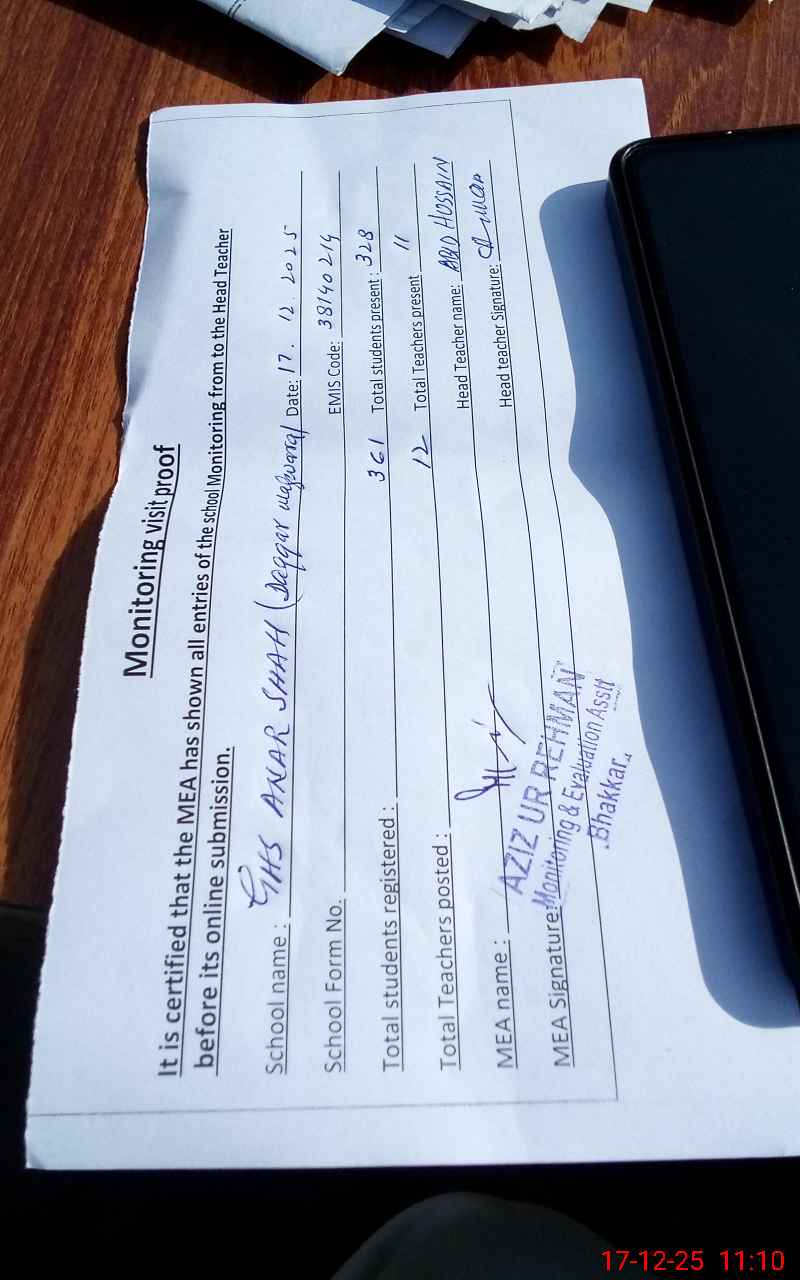 Monitoring visit proof
It is certified that the MEA has shown all entries of the school Monitoring from to the Head Teacher
before its online submission.
School name : GHS ANAR SHAH (Daggar Date: 17. 12. 2025
School Form No. EMIS Code: 38140214
Total students registered : 361 Total students present : 328
Total Teachers posted : 12 Total Teachers present 11
MEA name : Head Teacher name: ABID HOSSAIN
MEA Signature: Head teacher Signature:
AZIZ UR REHMAN
Monitoring & Evaluation Asstt
Bhakkar
17-12-25 11:10